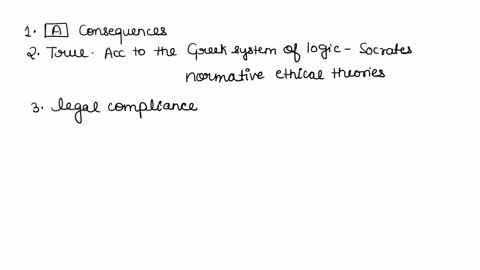 1. A Consequences
2. True. Acc to the Greek system of logic - Socrates
normative ethical theories
3. legal compliance